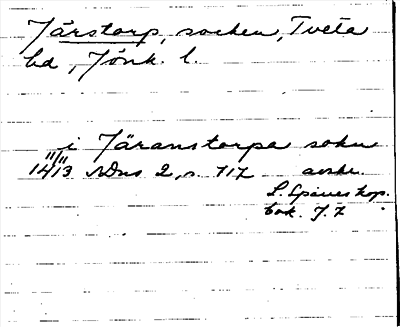 Järstorp, socken, Tveta
hd, Jönk. l.
i Järanstorpa sokn
11/11 1413 SDns 2, s. 717 avskr.
L. Sparres kop.
bok. f. 7